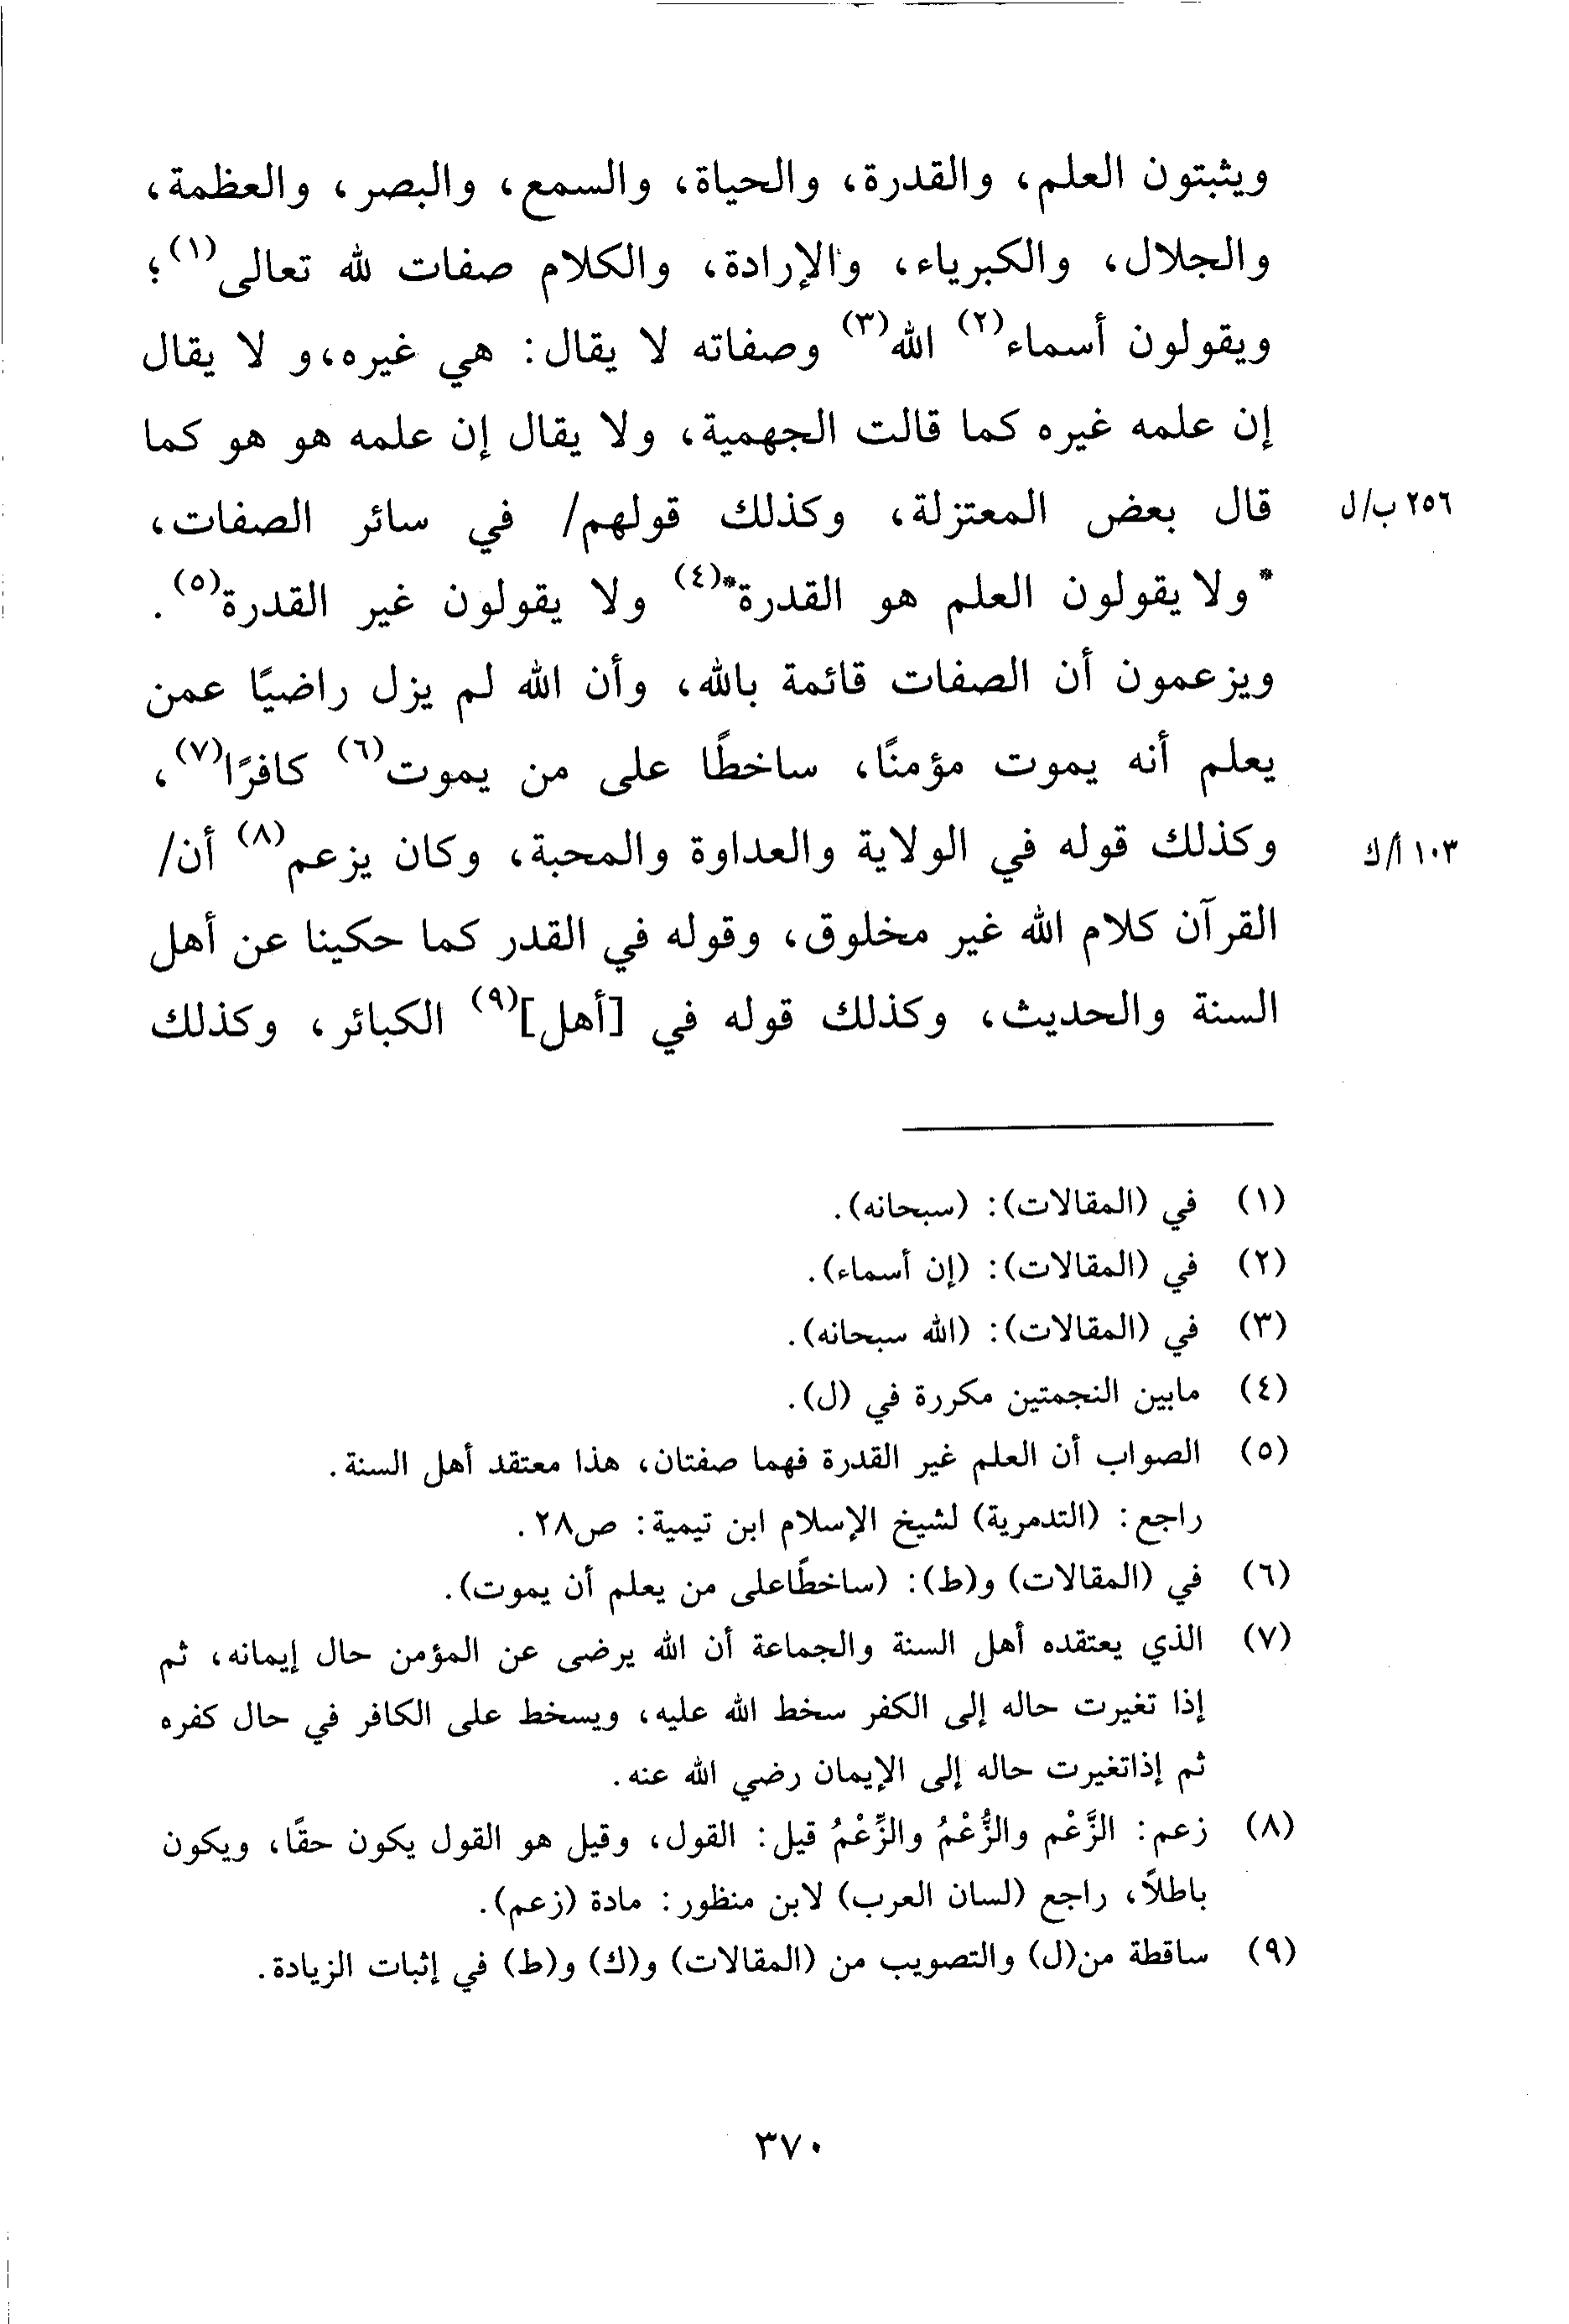 ويثبتون العلم، والقدرة، والحياة، والسمع، والبصر، والعظمة،
والجلال، والكبرياء، والإرادة، والكلام صفات لله تعالى(١)؛
ويقولون أسماء(٢) الله(٣) وصفاته لا يقال: هي غيره،و لا يقال
إن علمه غيره كما قالت الجهمية، ولا يقال إن علمه هو هو كما
قال بعض المعتزلة، وكذلك قولهم/ في سائر الصفات،
٢٥٦ ب/ل
*ولا يقولون العلم هو القدرة*(٤) ولا يقولون غير القدرة(٥).
ويزعمون أن الصفات قائمة بالله، وأن الله لم يزل راضيًا عمن
يعلم أنه يموت مؤمنًا، ساخطًا على من يموت(٦) كافرًا(٧)،
وكذلك قوله في الولاية والعداوة والمحبة، وكان يزعم(٨) أن/
١٠٣ أ/ك
القرآن كلام الله غير مخلوق، وقوله في القدر كما حكينا عن أهل
السنة والحديث، وكذلك قوله في [أهل](٩) الكبائر، وكذلك
(١) في (المقالات): (سبحانه).
(٢) في (المقالات): (إن أسماء).
(٣) في (المقالات): (الله سبحانه).
(٤) مابين النجمتين مكررة في (ل).
(٥) الصواب أن العلم غير القدرة فهما صفتان، هذا معتقد أهل السنة.
راجع: (التدمرية) لشيخ الإسلام ابن تيمية: ص٢٨.
(٦) في (المقالات) و(ط): (ساخطًاعلى من يعلم أن يموت).
(٧) الذي يعتقده أهل السنة والجماعة أن الله يرضى عن المؤمن حال إيمانه، ثم
إذا تغيرت حاله إلى الكفر سخط الله عليه، ويسخط على الكافر في حال كفره
ثم إذاتغيرت حاله إلى الإيمان رضي الله عنه.
(٨) زعم: الزَّعْم والزُّعْمُ والزِّعْمُ قيل: القول، وقيل هو القول يكون حقًا، ويكون
باطلاً، راجع (لسان العرب) لابن منظور: مادة (زعم).
(٩) ساقطة من(ل) والتصويب من (المقالات) و(ك) و(ط) في إثبات الزيادة.
٣٧٠